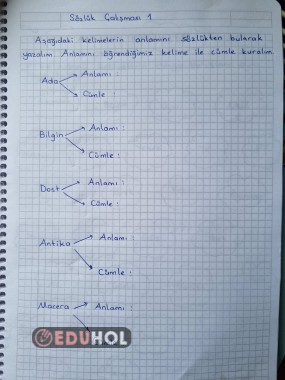 Sözlük Çalışması 1
Aşağıdaki kelimelerin anlamını sözlükten bularak
yazalım. Anlamını öğrendiğimiz kelime ile cümle kuralım
Ada
Anlamı :
Cümle :
Bilgin
Anlamı :
Cümle :
Dost
Anlamı :
Cümle :
Antika
Anlamı :
Cümle :
Macera
Anlamı :
EDUHOL